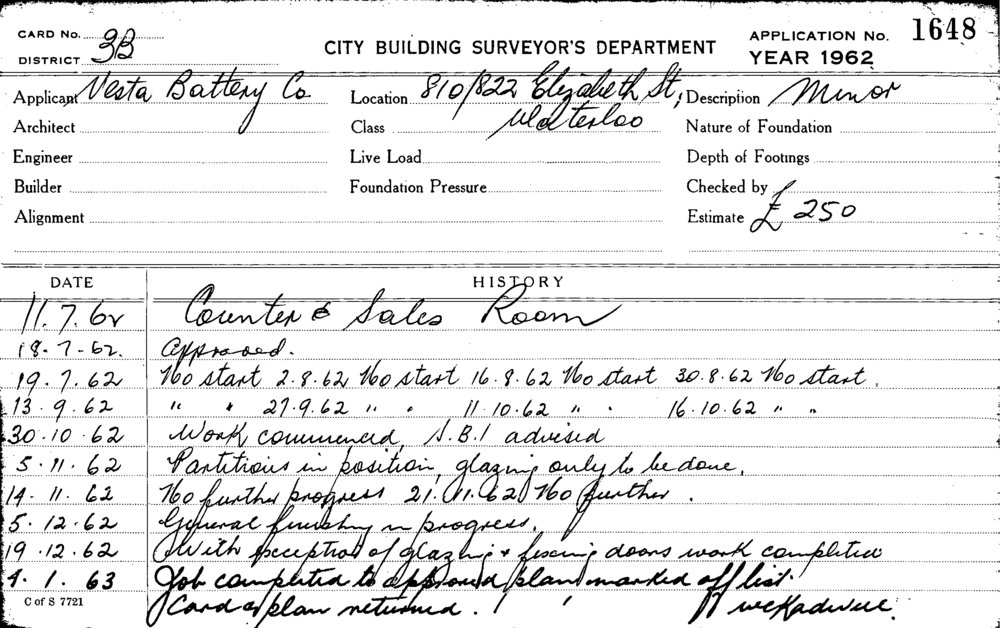 CARD No.
DISTRICT 3B
CITY BUILDING SURVEYOR'S DEPARTMENT
APPLICATION No. 1648
YEAR 1962
Applicant Vesta Battery Co Location 810/822 Elizabeth St, Description Minor
Architect Class Waterloo Nature of Foundation
Engineer Live Load Depth of Footings
Builder Foundation Pressure Checked by
Alignment Estimate £ 250
DATE HISTORY
11.7.62 Counter & Sales Room
18-7-62. Approved.
19.7.62 No start 2.8.62 No start 16.8.62 No start 30.8.62 No start.
13.9.62 " " 27.9.62 " " 11.10.62 " " 16.10.62 " "
30.10.62 Work commenced, S.B.I advised
5.11.62 Partitions in position, glazing only to be done.
14.11.62 No further progress 21.11.62 No further.
5.12.62 General finishing in progress.
19.12.62 With exception of glazing & fixing doors work completed
4.1.63 Job completed to approved plan marked off list.
C of S 7721 Card & plan returned.